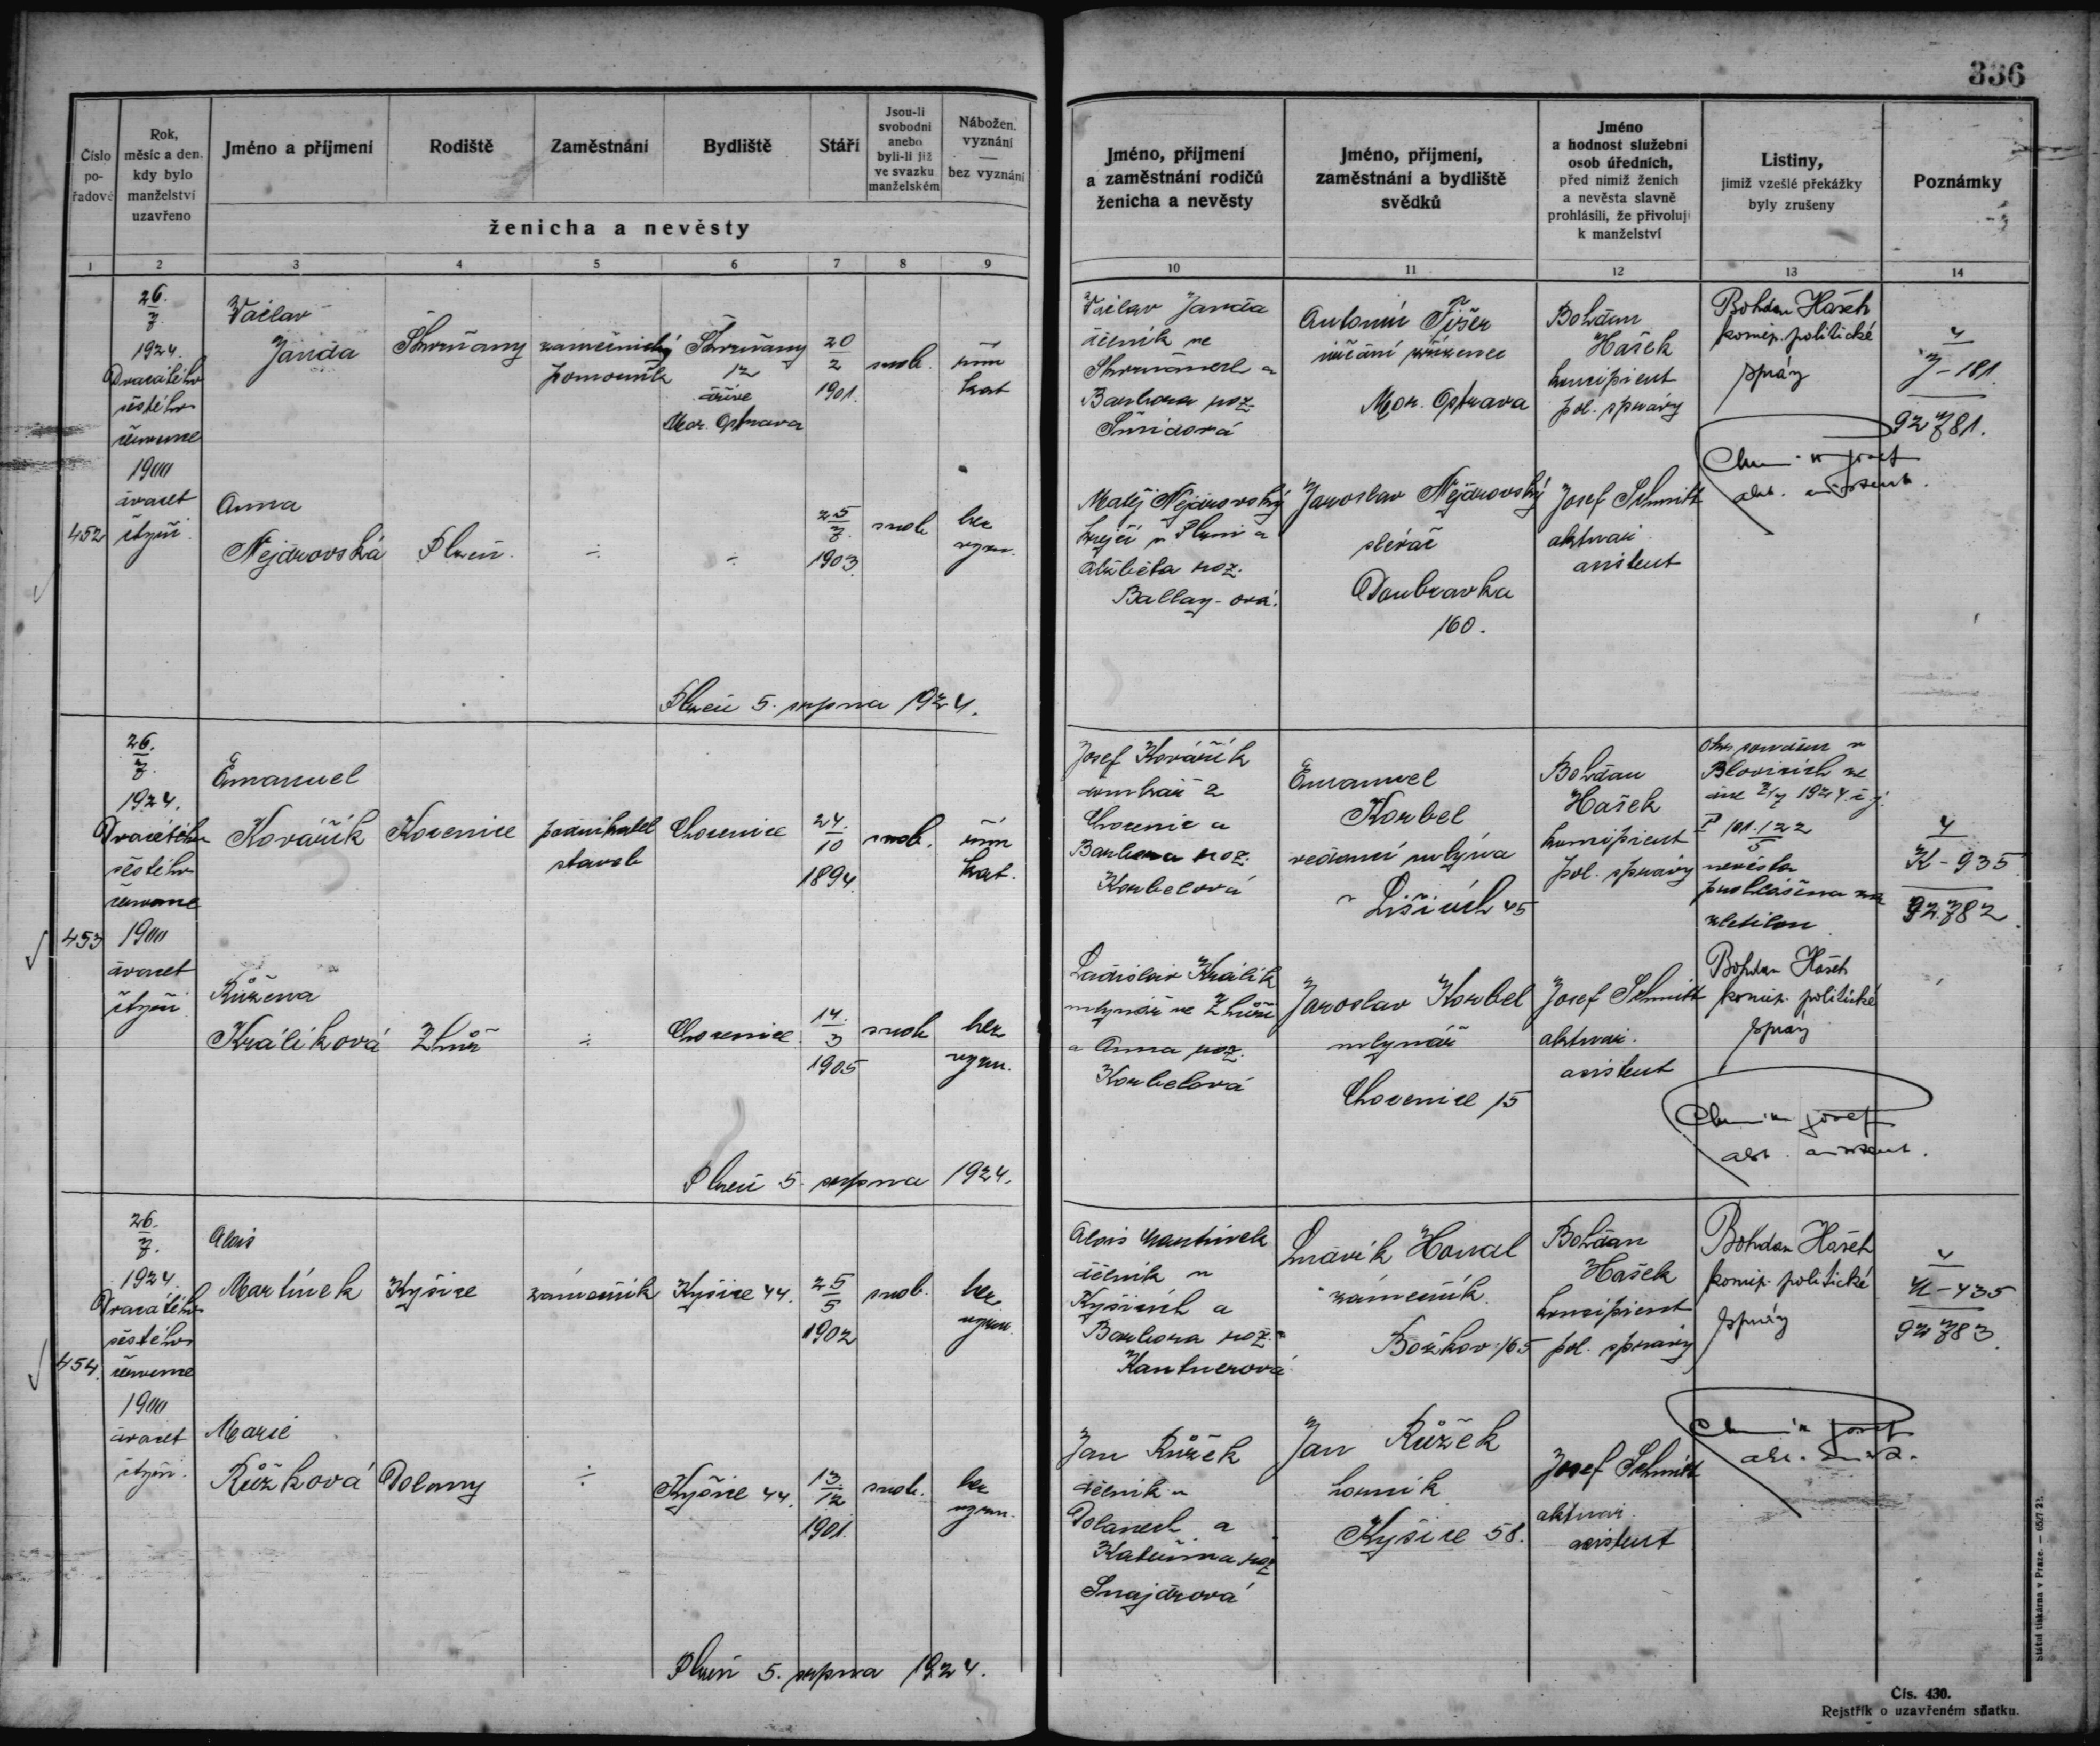 336
Číslo
po-
řadové
Rok,
měsíc a den,
kdy bylo
manželství
uzavřeno
Jméno a příjmení
Rodiště
Zaměstnání
Bydliště
Stáří
Jsou-li
svobodni
anebo
byli-li již
ve svazku
manželském
Nábožen.
vyznání
—
bez vyznání
ženicha a nevěsty
1 2 3 4 5 6 7 8 9
Jméno, příjmení
a zaměstnání rodičů
ženicha a nevěsty
Jméno, příjmení,
zaměstnání a bydliště
svědků
Jméno
a hodnost služební
osob úředních,
před nimiž ženich
a nevěsta slavně
prohlásili, že přivolují
k manželství
Listiny,
jimiž vzešlé překážky
byly zrušeny
Poznámky
10 11 12 13 14
452
26.
7.
1924.
Dvacátého
šestého
července
1900
dvacet
čtyři.
Václav
Janda
Škvrňany
zámečnický
pomocník
Škvrňany
12
dříve
Mor. Ostrava
20
2
1901.
svob.
řím
kat
Anna
Nejdrovská
Plzeň.
÷
÷
25
7.
1903.
svob
bez
vyzn.
Plzeň 5. srpna 1924.
Václav Janda
dělník ve
Škvrňanech a
Barbora roz.
Šmídová
Matěj Nejdrovský
krejčí v Plzni a
Alžběta roz.
Ballay-ová.
Antonín Fišer
Mor. Ostrava
Jaroslav Nejdrovský
slévač
Doubravka
160.
Bohdan
Hašek
koncipient
pol. správy
Josef Schmitt
aktuar.
asistent
Bohdan Hašek
koncip. politické
správy
4
J-181.
92781.
453
26.
7.
1924.
Dvacátého
šestého
července
1900
dvacet
čtyři
Emanuel
Kovářík
Kocenice
podnikatel
staveb
Chocenice
24.
10
1894.
svob.
řím
kat.
Růžena
Králíková
Zhůř
÷
Chocenice
14.
3
1905
svob
bez
vyzn.
Plzeň 5. srpna 1924.
Josef Kovářík
z
Chocenic a
Barbora roz.
Korbelová
Ladislav Králík
mlynář ve Zhůři
a Anna roz.
Korbelová
Emanuel
Korbel
vedoucí mlýna
v Lišicích 45
Jaroslav Korbel
mlynář
Chocenice 15
Bohdan
Hašek
koncipient
pol. správy
Josef Schmitt
aktuar.
asistent
Okr. soudem v
Blovicích ze
dne 2/7 1924 č. j.
P 101.122
5
nevěsta
prohlášena za
zletilou
Bohdan Hašek
koncip. politické
správy
4
K-935
92.782.
454.
26.
7.
1924.
Dvacátého
šestého
července
1900
dvacet
čtyři.
Alois
Martínek
Kyšice
zámečník
Kyšice 44.
25
5
1902
svob.
bez
vyzn.
Marie
Růžková
Dolany
÷
Kyšice 44.
13.
12
1901.
svob.
bez
vyzn.
Plzeň 5. srpna 1924.
Alois Martínek
dělník v
Kyšicích a
Barbora roz.
Kantnerová
Jan Růžek
dělník v
Dolanech a
Kateřina roz
Šnajdrová
Ludvík Honal
zámečník.
Božkov 165
Jan Růžek
horník
Kyšice 58.
Bohdan
Hašek
koncipient
pol. správy
Josef Schmitt
aktuar.
asistent
Bohdan Hašek
koncip. politické
správy
4
M-435
92783.
Státní tiskárna v Praze. — 657/21.
Čís. 430.
Rejstřík o uzavřeném sňatku.